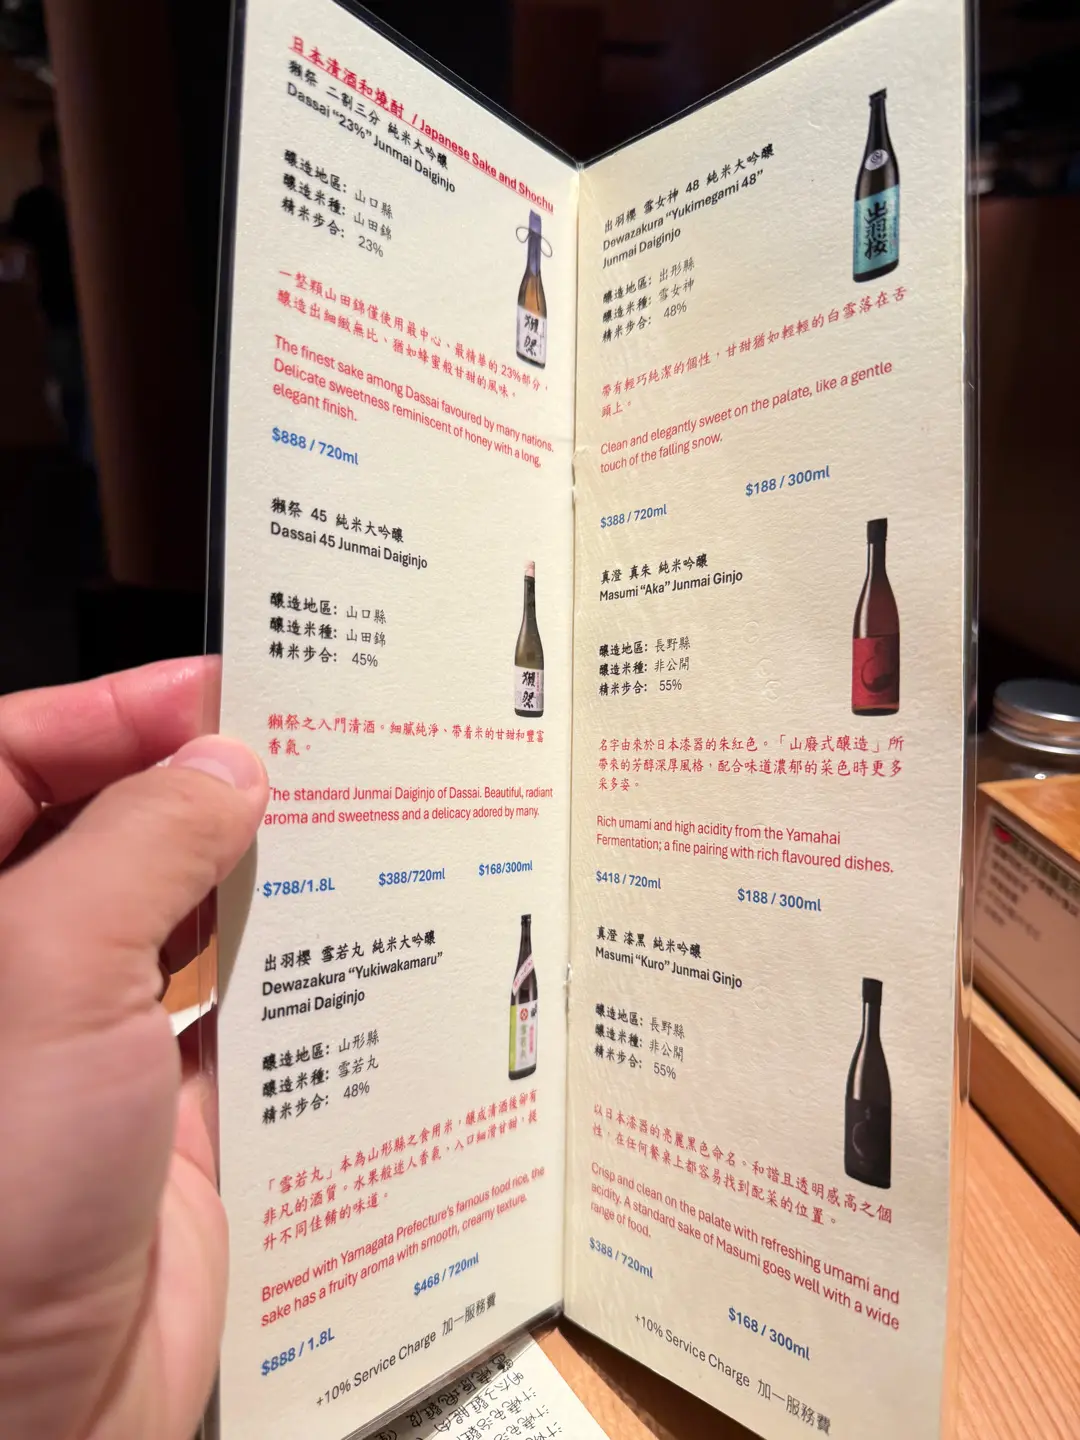 日本清酒和燒酎 / Japanese Sake and Shochu
獺祭 二割三分 純米大吟釀
Dassai "23%" Junmai Daiginjo
釀造地區: 山口縣
釀造米種: 山田錦
精米步合: 23%
一整顆山田錦僅使用最中心、最精華的23%部分，
釀造出細緻無比、猶如蜂蜜般甘甜的風味。
The finest sake among Dassai favoured by many nations.
Delicate sweetness reminiscent of honey with a long,
elegant finish.
$888 / 720ml
獺祭
獺祭 45 純米大吟釀
Dassai 45 Junmai Daiginjo
釀造地區: 山口縣
釀造米種: 山田錦
精米步合: 45%
獺祭之入門清酒。細膩純淨、帶着米的甘甜和豐富
香氣。
The standard Junmai Daiginjo of Dassai. Beautiful, radiant
aroma and sweetness and a delicacy adored by many.
$788/1.8L $388/720ml $168/300ml
獺祭
出羽櫻 雪若丸 純米大吟釀
Dewazakura "Yukiwakamaru"
Junmai Daiginjo
釀造地區: 山形縣
釀造米種: 雪若丸
精米步合: 48%
「雪若丸」本為山形縣之食用米，釀成清酒後卻有
非凡的酒質。水果般迷人香氣，入口細滑甘甜，提
升不同佳餚的味道。
Brewed with Yamagata Prefecture's famous food rice, the
sake has a fruity aroma with smooth, creamy texture.
$888 / 1.8L $468 / 720ml
雪若丸
+10% Service Charge 加一服務費
出羽櫻 雪女神 48 純米大吟釀
Dewazakura "Yukimegami 48"
Junmai Daiginjo
釀造地區: 出形縣
釀造米種: 雪女神
精米步合: 48%
帶有輕巧純潔的個性，甘甜猶如輕輕的白雪落在舌
頭上。
Clean and elegantly sweet on the palate, like a gentle
touch of the falling snow.
$388 / 720ml $188 / 300ml
出羽桜
真澄 真朱 純米吟釀
Masumi "Aka" Junmai Ginjo
釀造地區: 長野縣
釀造米種: 非公開
精米步合: 55%
名字由來於日本漆器的朱紅色。「山廢式釀造」所
帶來的芳醇深厚風格，配合味道濃郁的菜色時更多
采多姿。
Rich umami and high acidity from the Yamahai
Fermentation; a fine pairing with rich flavoured dishes.
$418 / 720ml $188 / 300ml
真澄 漆黑 純米吟釀
Masumi "Kuro" Junmai Ginjo
釀造地區: 長野縣
釀造米種: 非公開
精米步合: 55%
以日本漆器的亮麗黑色命名。和諧且透明感高之個
性，在任何餐桌上都容易找到配菜的位置。
Crisp and clean on the palate with refreshing umami and
acidity. A standard sake of Masumi goes well with a wide
range of food.
$388 / 720ml $168 / 300ml
+10% Service Charge 加一服務費